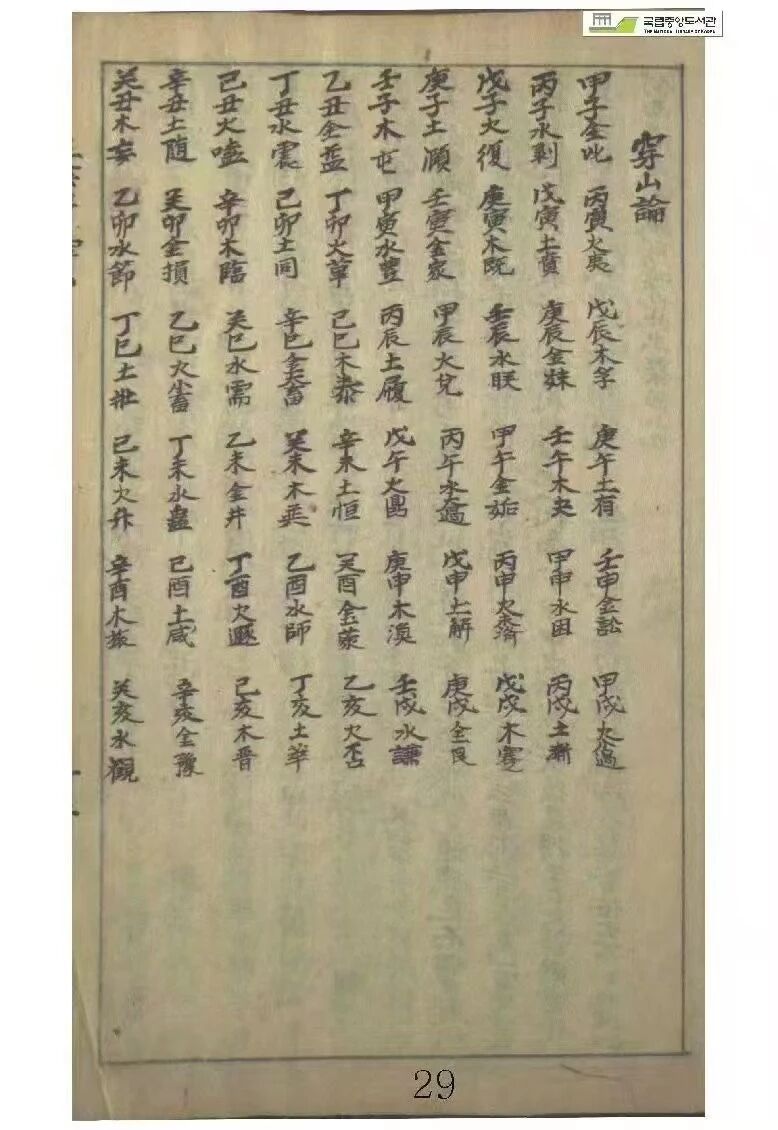 국립중앙도서관
THE NATIONAL LIBRARY OF KOREA
穿山論
甲子金吡 丙寅火夷 戊辰木孚 庚午土有 壬申金訟 甲戌火過
丙子水剝 戊寅土賁 庚辰金妹 壬午木夬 甲申水困 丙戌土漸
戊子火復 庚寅木既 壬辰水睽 甲午金姤 丙申火濟 戊戌木蹇
庚子土頤 壬寅金家 甲辰火兌 丙午水大過 戊申土解 庚戌金艮
壬子木屯 甲寅水豊 丙辰土履 戊午火鼎 庚申木渙 壬戌水謙
乙丑金益 丁卯火革 己巳木泰 辛未土恒 癸酉金蒙 乙亥火否
丁丑水震 己卯土同 辛巳金大畜 癸未木巽 乙酉水師 丁亥土萃
己丑火嗑 辛卯木臨 癸巳水需 乙未金井 丁酉火遯 己亥木晋
辛丑土随 癸卯金損 乙巳火小畜 丁未水蠱 己酉土咸 辛亥金豫
癸丑木妄 乙卯水節 丁巳土壯 己未火升 辛酉木旅 癸亥水觀
29